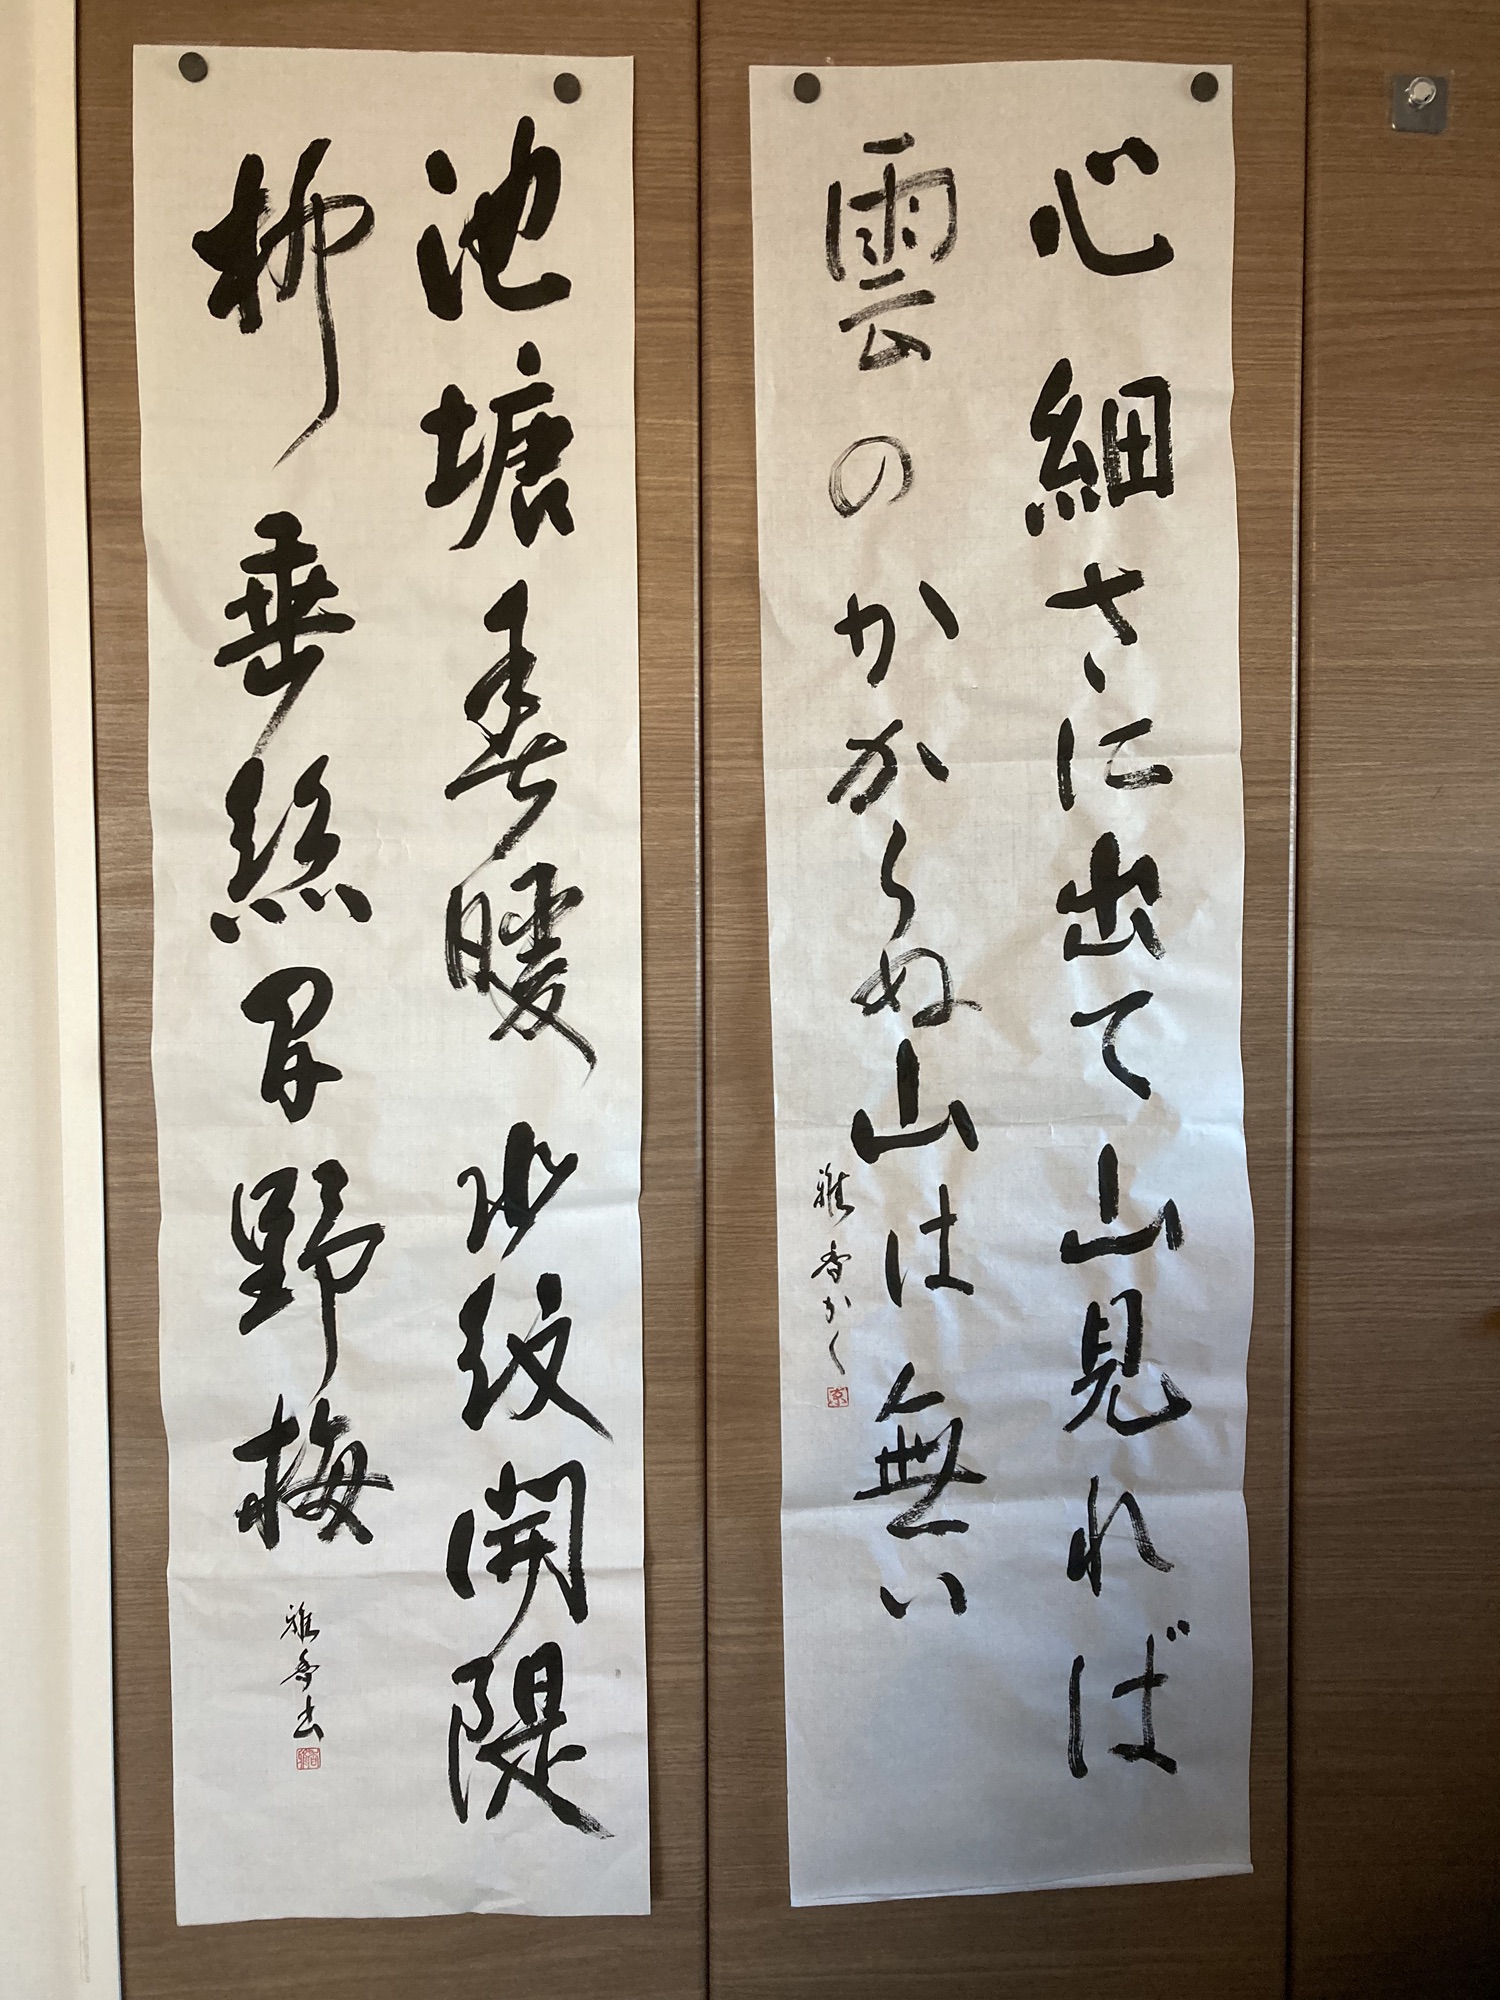 心細さに出て山見れば
雲のかからぬ山は無い
雅香かく
池塘春暖水紋開隄
柳垂絲間野梅
雅香書